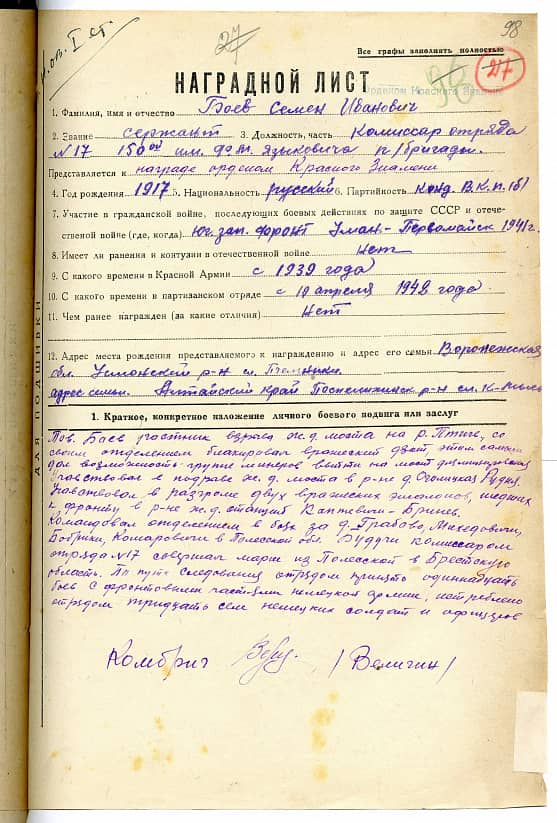 98
27
Н.ов. I ст.
Все графы заполнять полностью
36
27
Орденом Красного Знамени
НАГРАДНОЙ ЛИСТ
1. Фамилия, имя и отчество Баев Семен Иванович
2. Звание сержант 3. Должность, часть Комиссар отряда
№17 150ой им. Языковича п/бригады.
Представляется к награде орденом Красного Знамени
4. Год рождения 1917 5. Национальность русский 6. Партийность Канд. В.К.П.(б)
7. Участие в гражданской войне, последующих боевых действиях по защите СССР и отече-
ственной войне (где, когда) Юг. зап. фронт Уман-Первомайск 1941г.
8. Имест ли ранения и контузии в отечественной войне нет
9. С какого времени в Красной Армии с 1939 года
10. С какого времени в партизанском отряде с 10 апреля 1942 года
11. Чем ранее награжден (за какие отличия) Нет
12. Адрес места рождения представляемого к награждению и адрес его семьи Воронежская
обл. Усмонский р-н
адрес семьи. Алтайский край р-н
ДЛЯ ПОДШИВКИ
1. Краткое, конкретное изложение личного боевого подвига или заслуг
Тов. Баев участник взрыва ж.д. моста на р. Птичь, со
своим отделением блакировал вражеский дзот, этим самым
дал возможность группе минеров выйти на мост
Учавствовал в подрыве ж.д. моста в р-не д. Оголицкая Рудня
Учавствовал в разгроме двух вражеских эшалонов, шедших
к фронту в р-не ж.д. станций Капцевич-Бринев.
Командовал отделением в боях за д. Грабово, Михедовичи,
Бобрики, Комаровичи в Полесской обл. Будучи комиссаром
отряда №17 совершал марш из Полесской в Брестскую
область. По пути следования отрядом принято одиннадцать
боев с фронтовыми частями немецкой армии, истреблено
отрядом тридцать семь немецких солдат и офицеров
Комбриг /Величин/